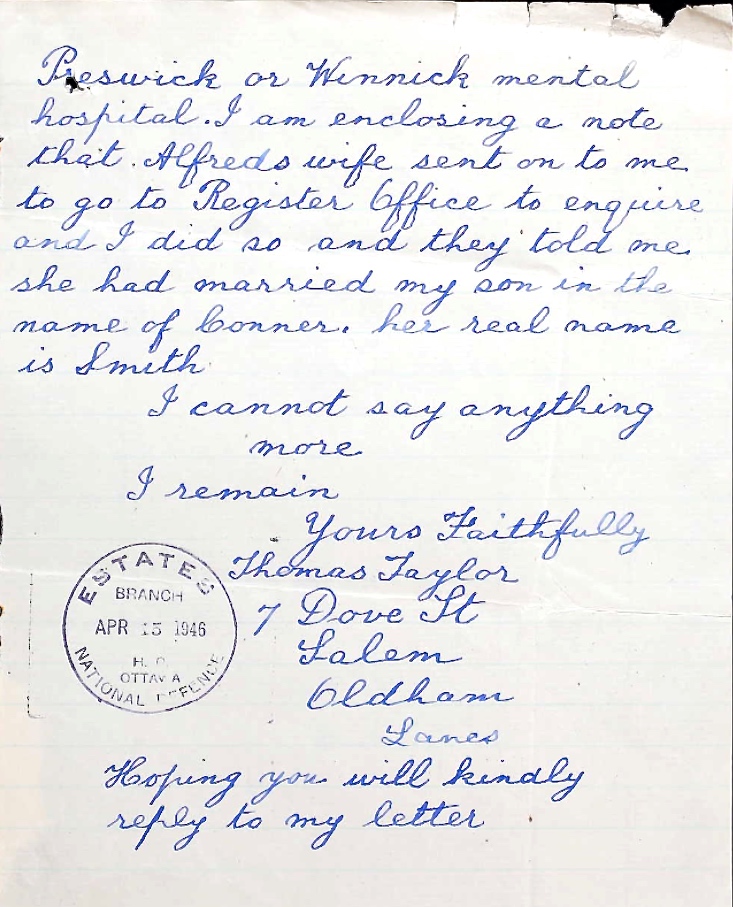 Preswick or Winnick mental
hospital. I am enclosing a note
that. Alfreds wife sent on to me
to go to Register Office to enquire
and I did so and they told me
she had married my son in the
name of Conner. her real name
is Smith
I cannot say anything
more
I remain
Yours Faithfully
Thomas Taylor
7 Dove St
Salem
Oldham
Lancs
Hoping you will kindly
reply to my letter
ESTATES
BRANCH
APR 15 1946
H. Q.
OTTAWA
NATIONAL DEFENCE